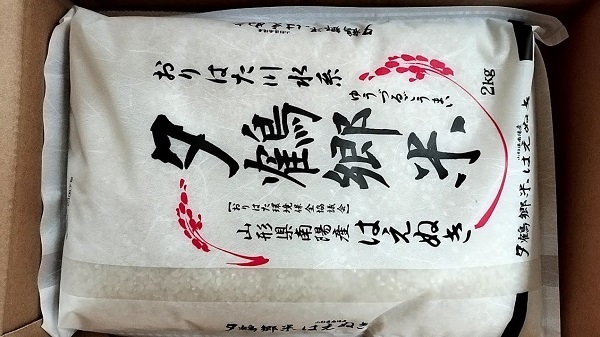 おりはた川水系
2kg
ゆうづるごうまい
夕鶴郷米
【おりはた環境保全協議会】
山形県南陽産はえぬき
夕鶴郷米はえぬき
夕鶴郷米はえぬき